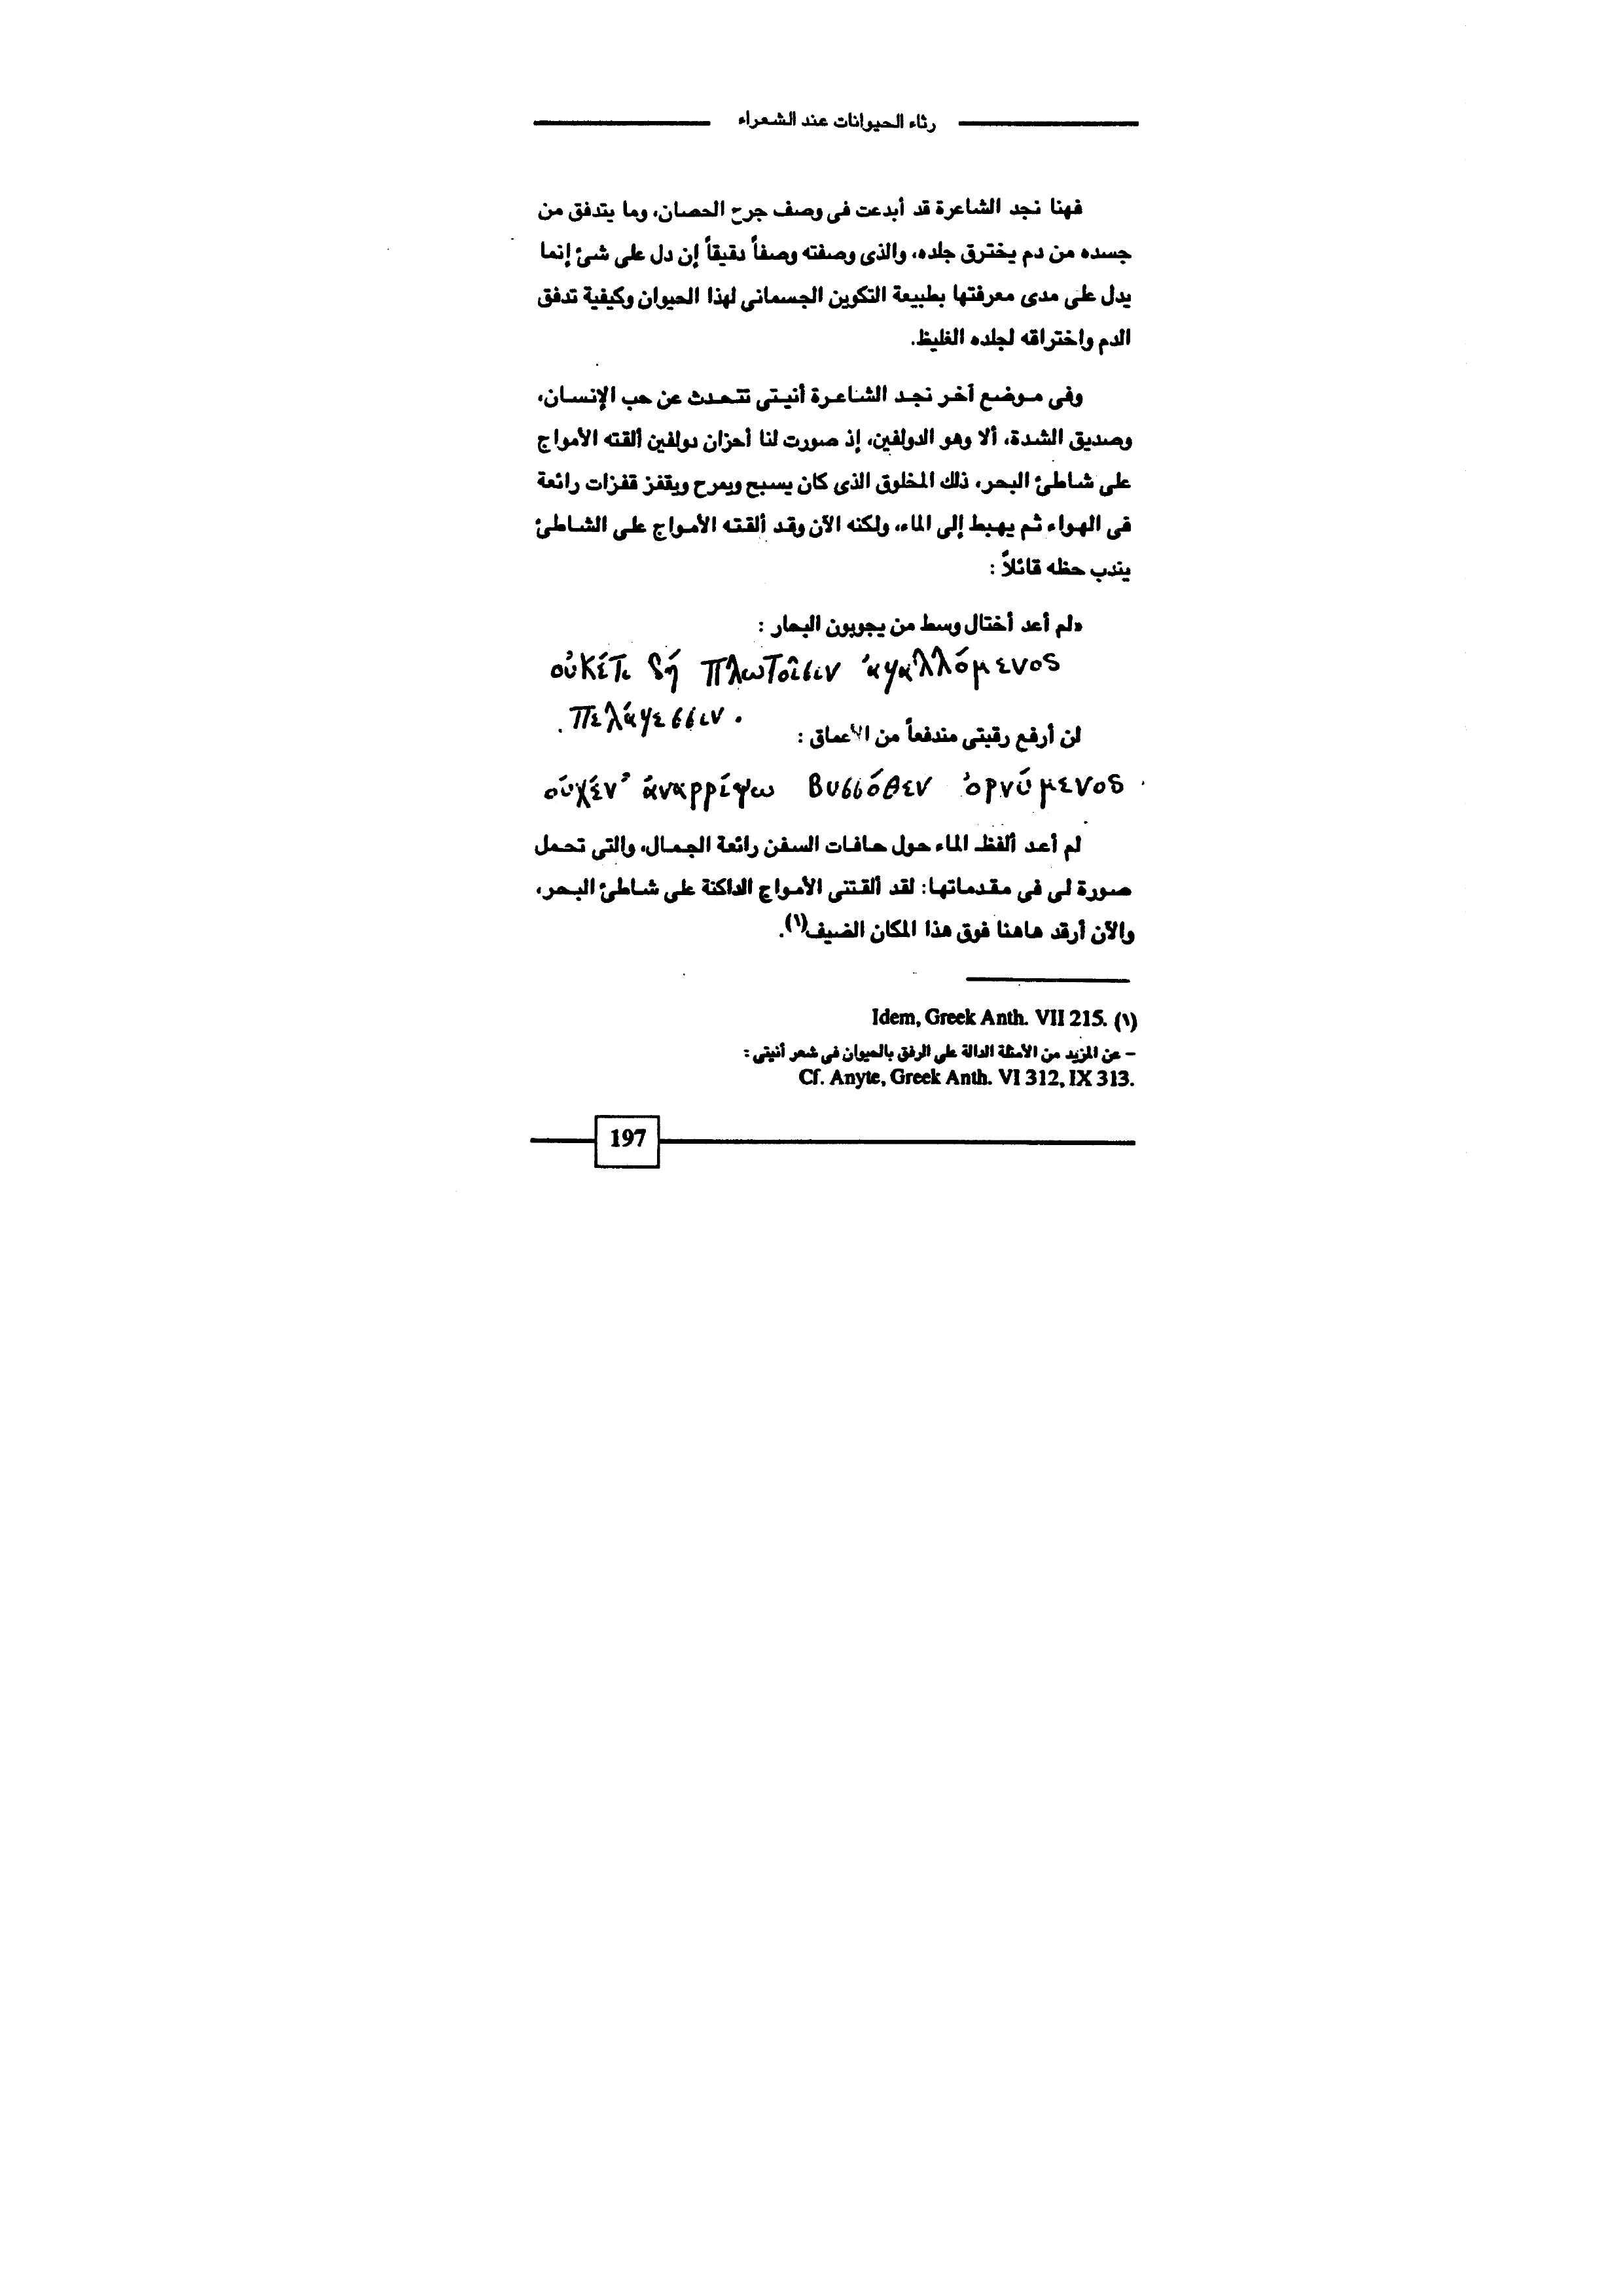 رثاء الحيوانات عند الشعراء
فهنا نجد الشاعرة قد أبدعت فى وصف جرح الحصان، وما يتدفق من
جسده من دم يخترق جلده، والذى وصفته وصفاً دقيقاً إن دل على شئ إنما
يدل على مدى معرفتها بطبيعة التكوين الجسمانى لهذا الحيوان وكيفية تدفق
الدم واختراقه لجلده الغليظ.
وفى موضع آخر نجد الشاعرة أنيتى تتحدث عن حب الإنسان،
وصديق الشدة، ألا وهو الدولفين، إذ صورت لنا أحزان دولفين ألقته الأمواج
على شاطئ البحر، ذلك المخلوق الذى كان يسبح ويمرح ويقفز قفزات رائعة
فى الهواء ثم يهبط إلى الماء، ولكنه الآن وقد ألقته الأمواج على الشاطئ
يندب حظه قائلاً :
«لم أعد أختال وسط من يجوبون البحار :
οὐκέτι δή πλωτοῖσιν ἀγαλλόμενος
πελάγεσσιν.
لن أرفع رقبتى مندفعاً من الأعماق :
οὐχέν' ἀναρρίψω βυσσόθεν ὀρνύμενος
لم أعد ألفظ الماء حول حافات السفن رائعة الجمال، والتى تحمل
صورة لى فى مقدماتها: لقد ألقتنى الأمواج الداكنة على شاطئ البحر،
والآن أرقد هاهنا فوق هذا المكان الضيف(١).
(١) Idem, Greek Anth. VII 215.
– عن المزيد من الأمثلة الدالة على الرفق بالحيوان فى شعر أنيتى :
Cf. Anyte, Greek Anth. VI 312, IX 313.
197